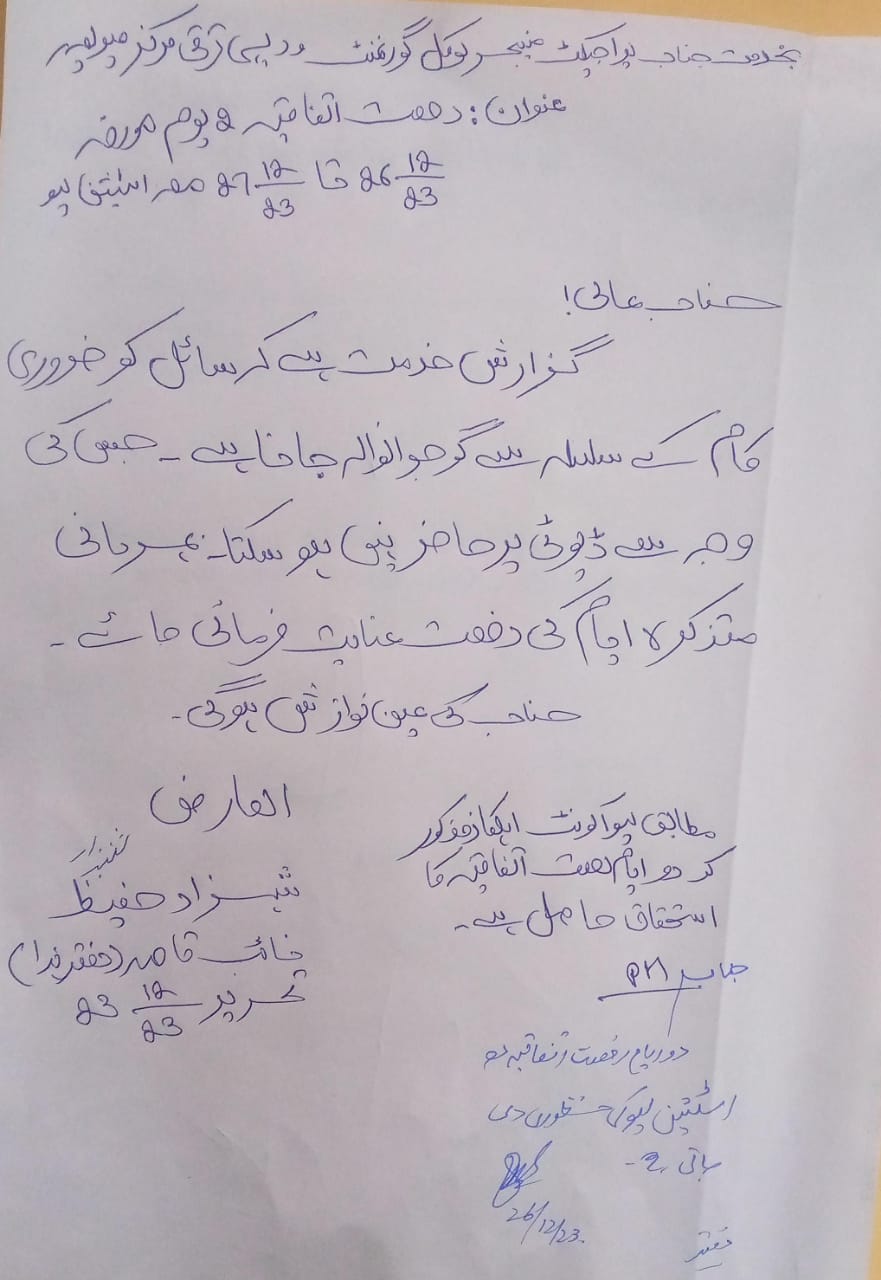 بخدمت جناب پراجیکٹ منیجر لوکل گورنمنٹ و دیہی ترقی مرکز
عنوان: رخصت اتفاقیہ 2 یوم مورخہ
26 12/23 تا 27 12/23 معہ اسٹیشن لیو
جناب عالی!
گزارش خدمت ہے کہ سائل کو ضروری
کام کے سلسلہ سے گوجرانوالہ جانا ہے ۔ جس کی
وجہ سے ڈیوٹی پر حاضر نہیں ہو سکتا۔ بمہربانی
متذکرہ ایام کی رخصت عنایت فرمائی جائے ۔
جناب کی عین نوازش ہوگی۔
العارض
شہزاد حفیظ
نائب قاصد (دفتر ہذا)
تحریر 23 12/23
مطابق لیو اکونٹ اہلکار مذکور
کو دو ایام رخصت اتفاقیہ کا
استحقاق حاصل ہے۔
جناب PM
دو ایام رخصت اتفاقیہ معہ
اسٹیشن لیو کی منظوری دی
جاتی ہے۔
26/12/23.
دفتر